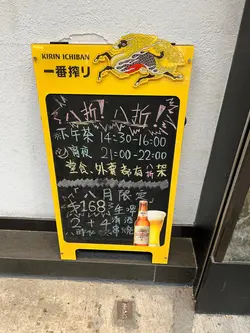 KIRIN ICHIBAN
一番搾り
八折! 八折!
下午茶 14:30-16:00
宵夜 21:00-22:00
堂食、外賣都有八折
八月限定
$168 生啤
2+4 清酒
串燒